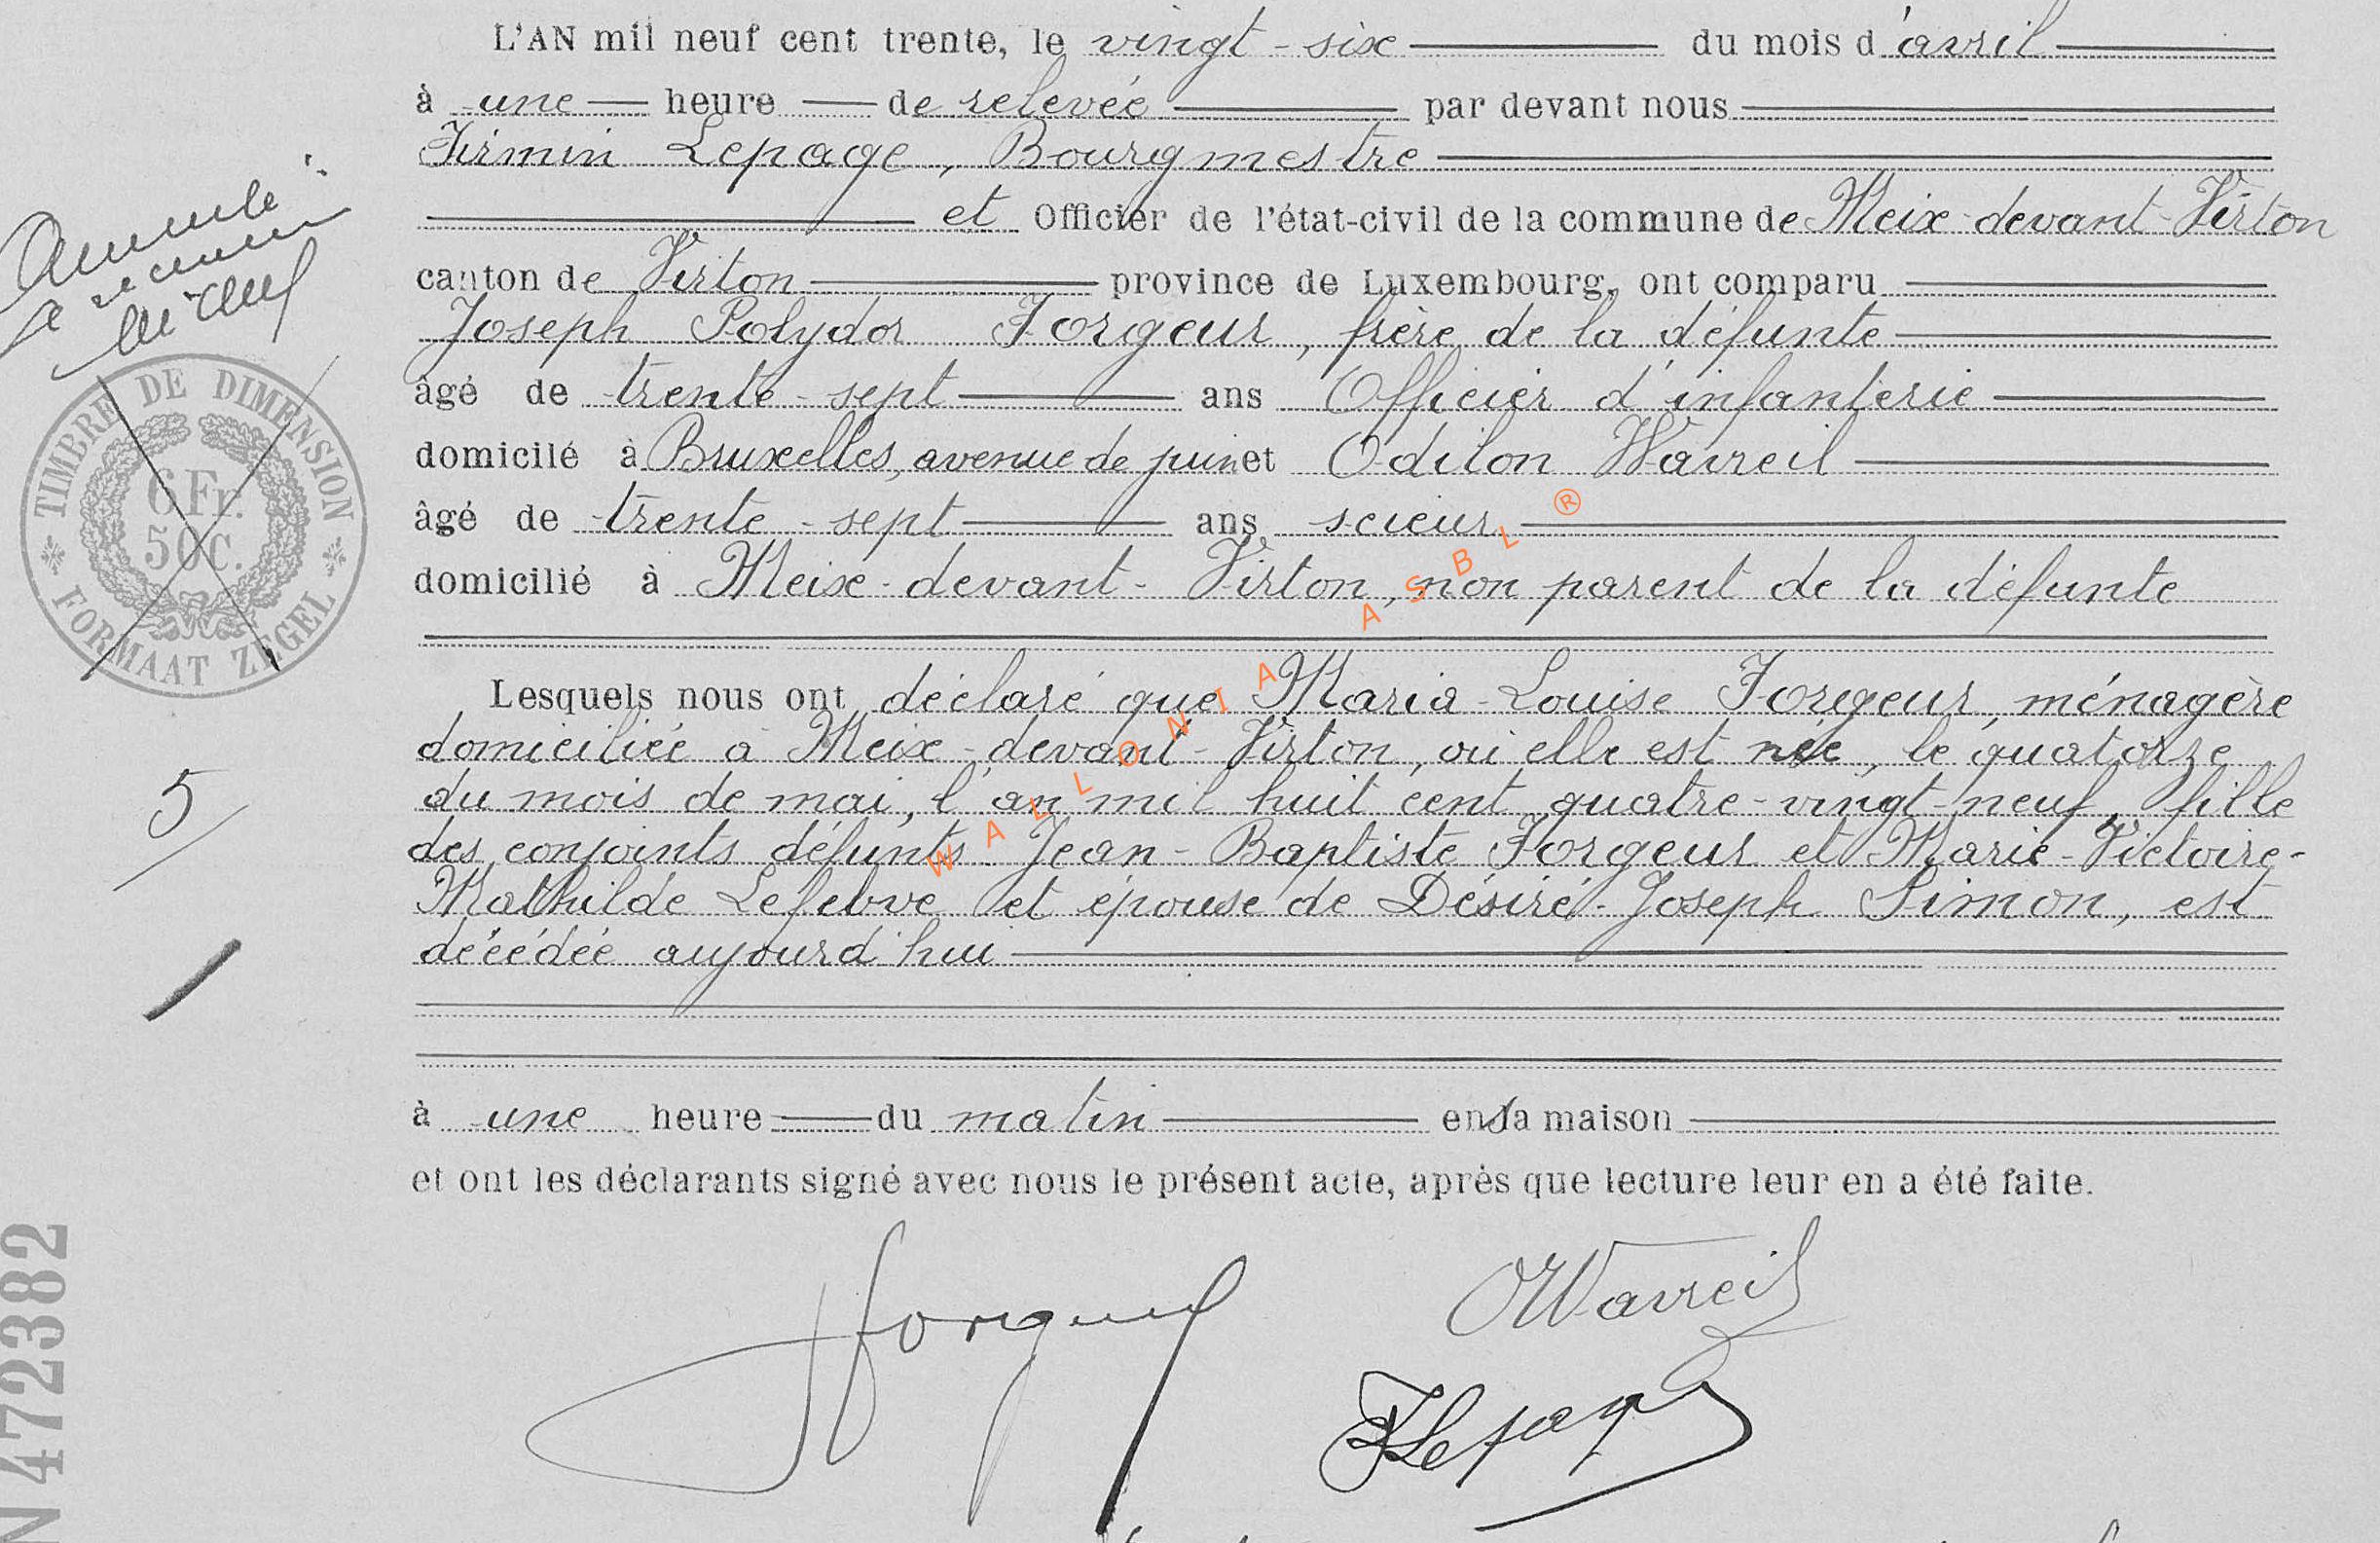 L'AN mil neuf cent trente, le vingt-six du mois d'avril
à une heure de relevée par devant nous
Firmin Lepage, Bourgmestre
et Officier de l'état-civil de la commune de Meix-devant-Virton
canton de Virton province de Luxembourg, ont comparu
Joseph Polydor Forgeur, frère de la défunte
âgé de trente-sept ans Officier d'infanterie
domicilé à Bruxelles, avenue de juin et Odilon Wavreil
âgé de trente-sept ans scieur
domicilié à Meix-devant-Virton, non parent de la défunte
Lesquels nous ont déclaré que Maria-Louise Forgeur, ménagère
domiciliée à Meix-devant-Virton, où elle est née, le quatorze
du mois de mai, l'an mil huit cent quatre-vingt-neuf, fille
des conjoints défunts Jean-Baptiste Forgeur et Marie-Victoire-
Mathilde Lefebvre et épouse de Désiré-Joseph Simon, est
décédée aujourd'hui
à une heure du matin en sa maison
et ont les déclarants signé avec nous le présent acte, après que lecture leur en a été faite.
Forgeur
OWavreil
FLepage
Annulé
TIMBRE DE DIMENSION
6 Fr.
50 C.
FORMAAT ZEGEL
5
N 472382
WALLONIA ASBL ®